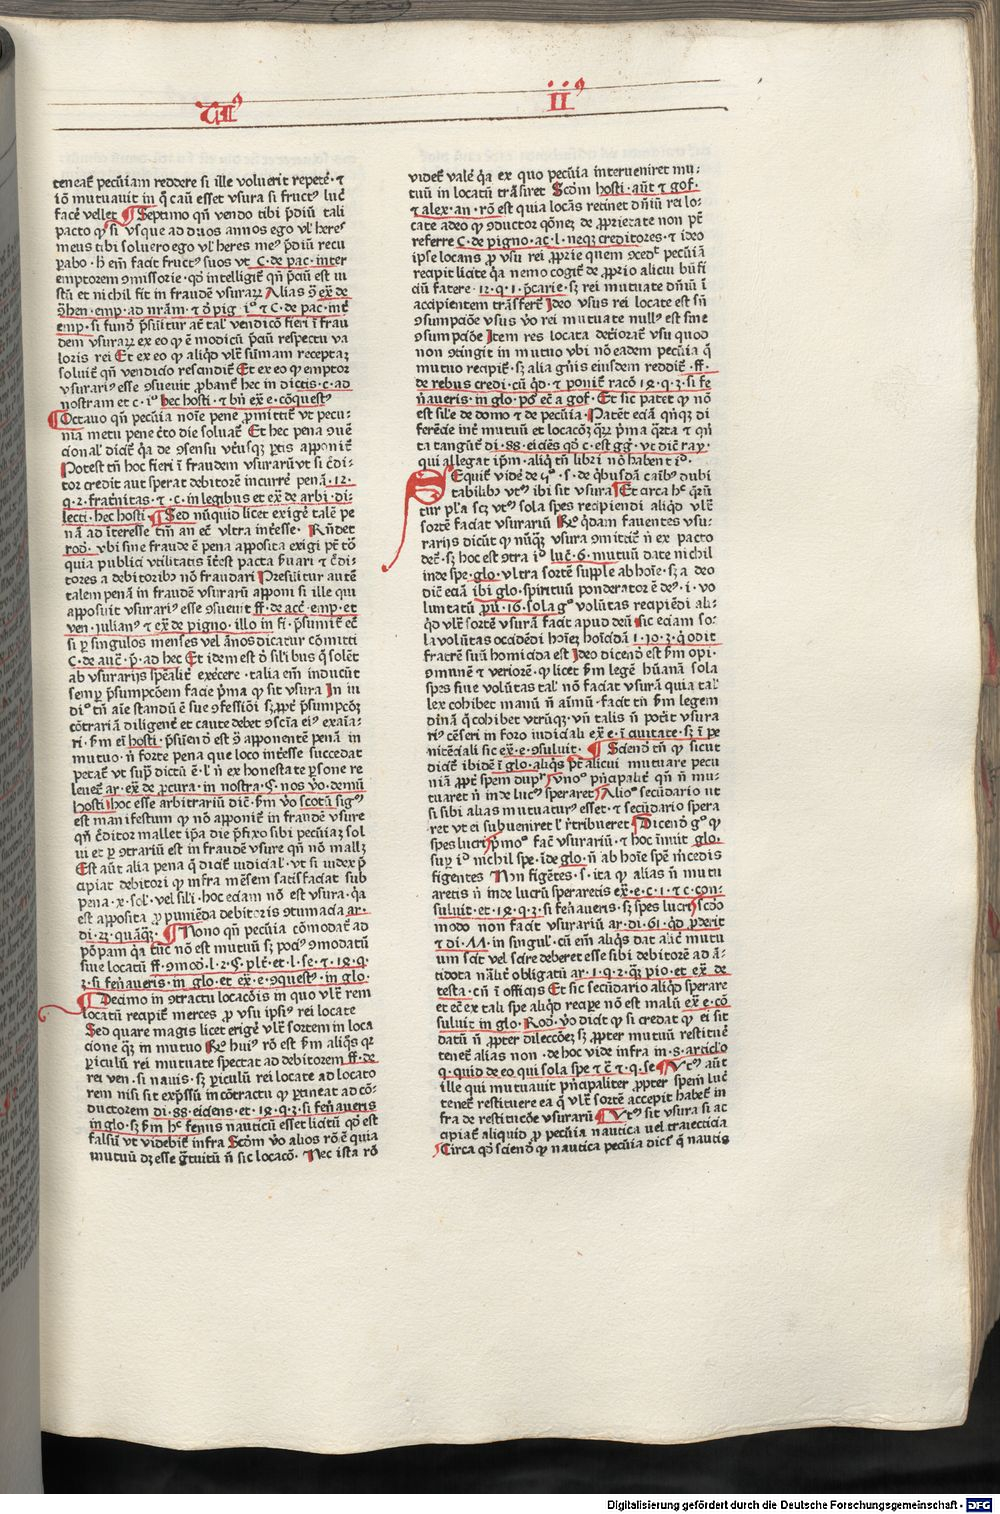 II⁹
teneat᷑ pecūiam reddere si ille voluerit repetē · ⁊
iō mutuauit in q̄ caū esset vsura si fruct⁹ luc̄
facē vellet ¶ Septimo qn̄ vendo tibi p̄diū tali
pacto qͥ si vsque ad duos annos ego vl̓ heres
meus tibi soluero ego vl̓ heres me⁹ p̄diū recu
emptorem ꝯmissorie · qd̓ intelligit᷑ qn̄ p̄cīu est iu
stū et nichil fit in fraudē vsurarꝝ Alias ꝯͣ ex̄ de
emp · si fund⁹
dem vsurarꝝ ex eo ꝙ ē modicū p̄cīu respectu va
loris rei Et ex eo ꝙ aliqd̓ vlt̄ sūmam receptaꝫ
soluit᷑ qn̄ vendicio rescindit᷑ Et ex eo ꝙ emptor
vsurari⁹ esse ꝯsueuit ꝓbant᷑ hec in dictis · c · ad
nostram et c · i° hec hosti · ⁊ bn̄ ex̄ e · cōquest⁹
¶ Octauo qn̄ pecūia noīe pene ꝓmittit᷑ vt pecu-
nia metu pene c̄to die soluat᷑ Et hec pena ꝯuē
cional̓ dicit᷑ q̓a de ꝯsensu vt̓usqꝫ ꝑtis apponit᷑
Potest tn̄ hoc fieri ī fraudem vsurarū vt si c̄di-
tor credit aut sperat debitorē incurrē penā · 12 ·
q · 2 · frat̓nitas · ⁊ · c · in legibus et ex̄ de arbi · di-
lecti · hec hosti ¶ Sed nūquid licet exigē talē pe
nā ad īteresse tm̄ an ec̄ vltra int̓esse · Rn̄det
rod̓ · vbi sine fraude ē pena apposita exigi pt̄ ꝓͭ
quia publici vtilitatis īt̓est pacta ẜuari ⁊ c̄di-
tores a debitorib⁹ nō fraudari Presūitur autē
talem penā in fraudē vsurarū apponi si ille qui
apposuit vsurari⁹ esse ꝯsueuit ff · de acc̄ · emp · et
ven · iulian⁹ ⁊ ex̄ de pigno · illo in fi · p̄sumit᷑ ec̄
si ꝑ singulos menses vel ānos dicatur cōmitti
C · de aue · p̄ · ad hec Et idem est ꝺ̄ sil̓ibus q̄ solēt
ab vsurarijs spēalit᷑ exēcere · talia em̄ inducūt
semꝑ p̄sumpcōem facie p̄ma ꝙ sit vsura In iu
di° tn̄ aīe standū ē sue ꝯfessiōi sꝫ ꝓpt̄ p̄sumpcōꝫ
cōtrariā diligent᷑ et caute debet ꝯscīa ei⁹ exaīa-
mutuo · n̄ forte pena que loco int̓esse succedat
petat᷑ vt sup̓ dictū ē · l̓ n̄ ex honestate ꝑsone re
leuet᷑ ar · ex̄ de ꝓcura · in nostra · §. nos v̓o · demū
hosti hoc esse arbitrariū dic̄ · ẜm v̓o scotū sig⁹
est manifestum ꝙ nō apponit᷑ in fraudē vsure
qn̄ c̄ditor mallet ip̄a die p̄fixo sibi pecūiaꝫ sol
ui et ꝑ ꝯtrariū est in fraudē vsure qn̄ nō mallꝫ
Est aūt alia pena q̄ dicit᷑ iudicial̓ · vt si iudex p̄
cipiat debitori ꝙ infra mēsem satisfaciat sub
pena · x · sol̓ · vel sil̓i · hoc eciam nō est vsura · q̓a
est apposita ꝓ puniēda debitoris ꝯtumacia ar ·
di · 23 · quāqꝫ · ¶ Nono qn̄ pecūia cōmodat᷑ ad
pōpam q̓a tūc nō est mutuū sꝫ poci⁹ ꝯmodatū
siue locatū ff · ꝯmod̓ · l · 2 · §. plc̄ · et · l · se · ⁊ · 14 · q ·
3 · si fen̄aueris · in glo · et ex̄ · e · ꝯquest⁹ · in glo ·
¶ Decimo in ꝯtractu locacōis in quo vlt̄ rem
locatū recipit᷑ merces ꝓ vsu ipsi⁹ rei locate
Sed quare magis licet exigē vlt̄ sortem in loca
cione qͣꝫ in mutuo ℞ hui⁹ rō est ẜm aliqͣs qꝛ
ꝑiculū rei mutuate spectat ad debitorem ff · de
rei ven · si nauis · sꝫ ꝑiculū rei locate ad locato
rem nisi sit exp̄ssū in cōtractu ꝙ ꝑtineat ad cō-
ductorem di · 88 · eiciens · et · 14 · q · 3 · si fen̄aueris
in glo · sꝫ ẜm hͨ fenus nauticū esset licitū qd̓ est
falsū vt videbit᷑ infra Scōm v̓o alios rō ē quia
mutuū dꝫ esse gͣtuitū n̄ sic locacō · Nec ista rō
videt᷑ valē q̓a ex quo pecūia interueniret mu-
tuū in locatū trāsiret Scōm hosti · aūt ⁊ gof ·
⁊ alex · an · rō est quia locās retinet dn̄iū rei lo-
cate adeo ꝙ ꝯductor qōneꝫ de ꝓprietate non pt̄
referre C · de pigno · ac · l · neqꝫ creditores · ⁊ ideo
ipse locans ꝓ vsu rei ꝓprie quem ꝯcedit᷑ pecūiā
recipit licite q̓a nemo cogit᷑ de ꝓprio alicui bn̄fi
ciū facere · 12 · q · 1 · p̄carie · sꝫ rei mutuate dn̄iū ī
accipientem trāsfert᷑ Ideo vsus rei locate est sn̄
ꝯsumpcōe vsus v̓o rei mutuate null⁹ est sine
ꝯsumpcōe Item res locata det̓iorat᷑ vsu quod
non ꝯtingit in mutuo vbi nō eadem pecūia q̄
mutuo recipit᷑ · sꝫ alia gn̄is eiusdem reddit᷑ · ff ·
de rebus credi · cū qd̓ · ⁊ ponit᷑ racō 14 · q · 3 · si fe
n̄aueris · in glo · po⁹ ec̄ a gof · Et sic patet ꝙ nō
est sil̓e de domo ⁊ de pecūia · Patēt eciā qn̄qꝫ di
ferēcie int̓ mutuū et locacōꝫ quaꝝ p̄ma q̓rta ⁊ qn̄
ta tangūt᷑ di · 88 · eiciēs qd̓ c · est gg⁹ · vt dic̄ ray ·
qui allegat ip̄m · aliq̓ tn̄ libri nō habent i° ·
Sequit᷑ videre de 2° · s · de qͥbusdā casib⁹ dubi
tabilib⁹ vt⁹ ibi sit vsura ¶ Et circa hͨ q̄rūt
tur pl̓a scꝫ vt⁹ sola spes recipiendi aliqd̓ vlt̄
sortē faciat vsurariū ℞ qͥdam fauentes vsu-
rarijs dicūt ꝙ nūqͣꝫ vsura ꝯmittit᷑ n̄ ex pacto
det᷑ · sꝫ hoc est ꝯtra i° luc̄ · 6 · mutuū date nichil
inde spe · glo · vltra sortē supple ab hoīe · sꝫ a deo
dic̄ eciā ibi glo · spirituū ponderator ē de⁹ · i · vo
luntatū ꝓu · 16 · sola g° volūtas recipiēdi ali-
qd̓ vlt̄ sortē vsurā facit apud deū sic eciam so-
la volūtas occidēdi hoīeꝫ hoīcidā 1 · 10 · 3 · q̄ odit
fratrē suū homicida est Ideo dicend⁹ est ẜm opi ·
ꝯmunē ⁊ veriorē · ꝙ licet ẜm legē hūanā sola
spes siue volūtas tal̓ nō faciat vsurā quia tal̓
lex cohibet manū n̄ aīmū · facit tn̄ ẜm legem
diuinā q̄ cohibet vtrūqꝫ · vn̄ talis n̄ pot̓it vsura
ri⁹ cēseri in foro iudiciali ex̄ e · ī ciuitate · sꝫ ī pe
nitēciali sic ex̄ · e · ꝯsuluit · ¶ Sciend⁹ tn̄ ꝙ sicut
dicit᷑ ibidē ī glo · aliqͥs pt̄ alicui mutuare pecu
niā ꝓpt̄ spem dupl̓r vno° p̄ncipalit᷑ qn̄ n̄ mu-
tuaret n̄ inde luc⁹ speraret Alio° secūdario ut
si sibi alias mutuatur⁹ esset · ⁊ secūdario spera
ret vt ei subueniret l̓ ret̓ribueret ¶ Dicend⁹ g° ꝙ
spes lucri p̄mo° fac̄ vsurariū · ⁊ hoc īnuit glo ·
suꝑ i° nichil spe · īde glo · n̄ ab hoīe spē m̄cedis
figentes Non figētes · s · ita ꝙ alias n̄ mutu
aretis n̄ inde lucrū speraretis ex̄ · e · c · 1 · ⁊ c · con-
suluit · et · 14 · q · 3 · si fen̄aueris · sꝫ spes lucri scd̓o
modo non facit vsurariū ar · di · 61 · qd̓ ꝓderit
⁊ di · 11 · in singul̓ · cū em̄ aliqͥs dat alic̄ mutu
um scit vel scire deberet esse sibi debitorē ad ā-
tidota nāl̓it̓ obligatū ar · 1 · q · 2 · qͣꝫ pio · et ex̄ de
testa · cū ī officijs Et sic secūdario aliqd̓ sperare
et ec̄ ex tali spe aliqd̓ recipe nō est malū ex̄ e · cō
suluit in glo · Rod̓ · v̓o dicit ꝙ si credat ꝙ ei sit
datū n̄ ꝓpter dilecc̄oeꝫ sꝫ ꝓpter mutuū restitue̓
tenet᷑ alias non · de hoc vide infra in · 8 · articl̓o
q · quid de eo qui sola spe ⁊ c̄ ⁊ · q · se ¶ Vt⁹ aūt
ille qui mutuauit p̄ncipaliter ꝓpter spem luc̄
tenet᷑ restituere ea q̄ vlt̄ sortē accepit habet᷑ in
fra de restitucōe vsurarū ¶ Vt⁹ sit vsura si ac
cipiat᷑ aliquid ꝓ pecūia nautica uel traiecticia
Circa qd̓ sciend⁹ ꝙ nautica pecūia dicit᷑ q̄ nautis
Digitalisierung gefördert durch die Deutsche Forschungsgemeinschaft · DFG